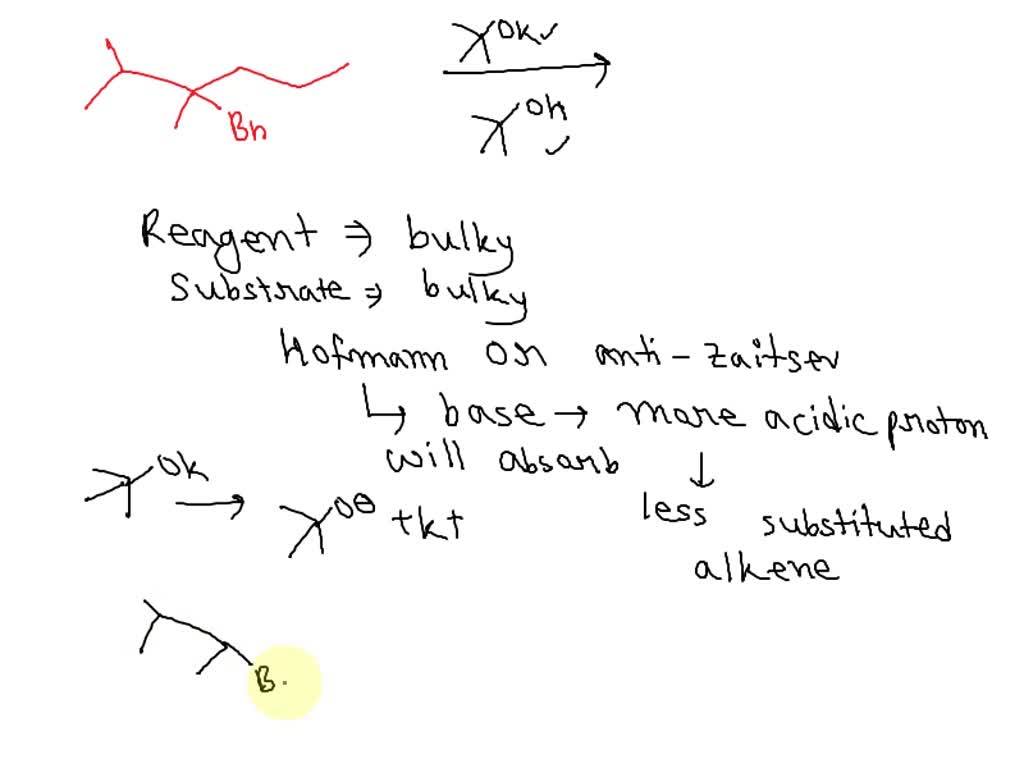 OK✓
OH ✓
Br
Reagent ⇒ bulky
Substrate ⇒ bulky
Hofmann or anti-zaitsev
↳ base → more acidic proton
will absorb ↓
OK → O⊖ + K+
less substituted
alkene
B.